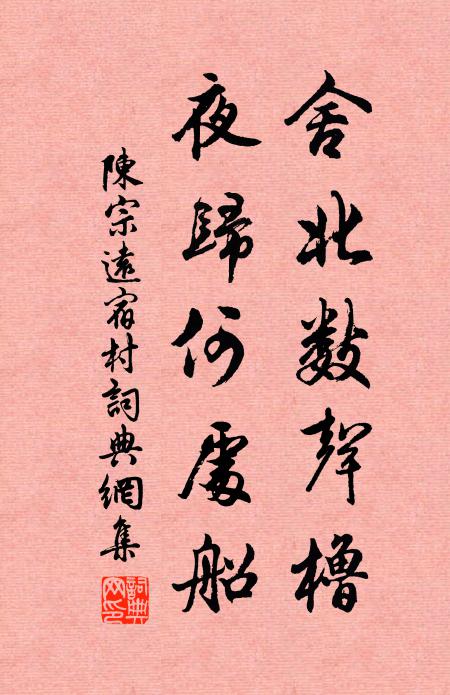 舍北數聲櫓
夜歸何處船
陳宗遠宿村詞典網集
詞典網印